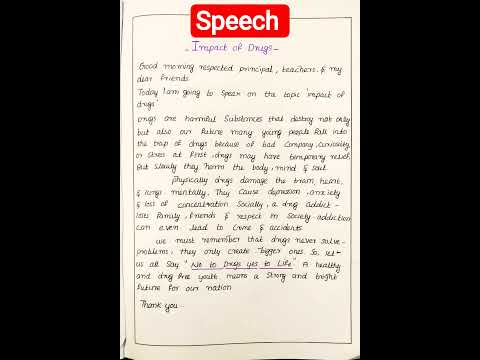 Speech
- Impact of Drugs -
Good morning respected principal, teachers & my
dear friends
Today I am going to Speak on the topic 'impact of
drugs'
Drugs are harmful Substances that destroy not only
but also our future many young people fall into
the trap of drugs because of bad Company, curiosity
or Stress at first, drugs may have temporary relief
But slowly they harm the body, mind & soul
Physically drugs damage the brain, heart,
& lungs mentally, They cause depression, anxiety
& loss of concentration. Socially, a drug addict-
losts family, friends & respect in Society addiction
can even lead to Crime & accidents
we must remember that drugs never solve-
problems, they only create bigger ones. So, let-
us all Say "No to Drugs yes to Life". A healthy
and drug free youth means a Strong and bright
future for our nation
Thank you